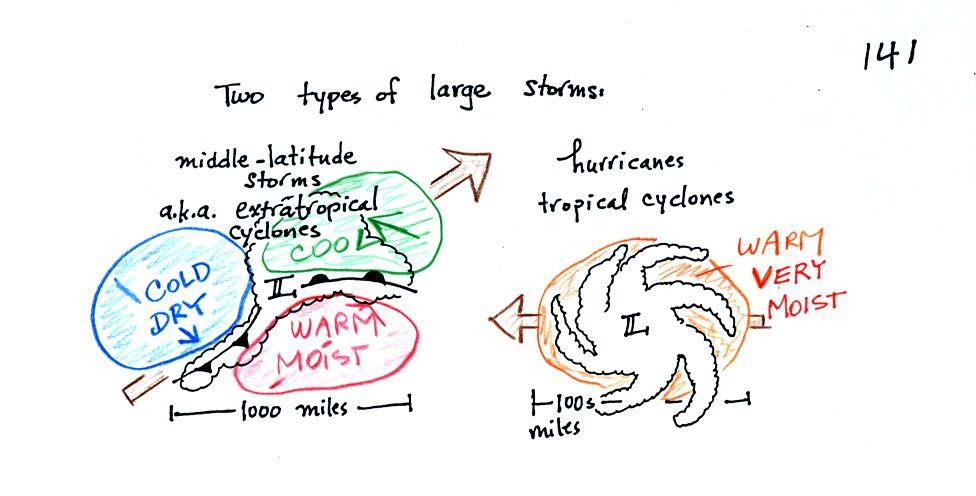 141
Two types of large storms:
middle-latitude
storms
a.k.a. extratropical
cyclones
COOL
COLD
DRY
L
WARM
MOIST
1000 miles
hurricanes
tropical cyclones
WARM
VERY
MOIST
L
100s
miles